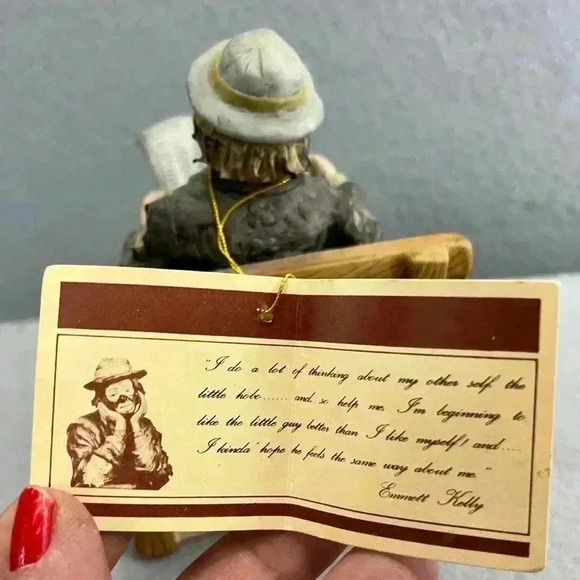 "I do a lot of thinking about my other self the
little hobo...... and so help me I'm beginning to
like the little guy better than I like myself! and....
I kinda' hope he feels the same way about me."
Emmett Kelly